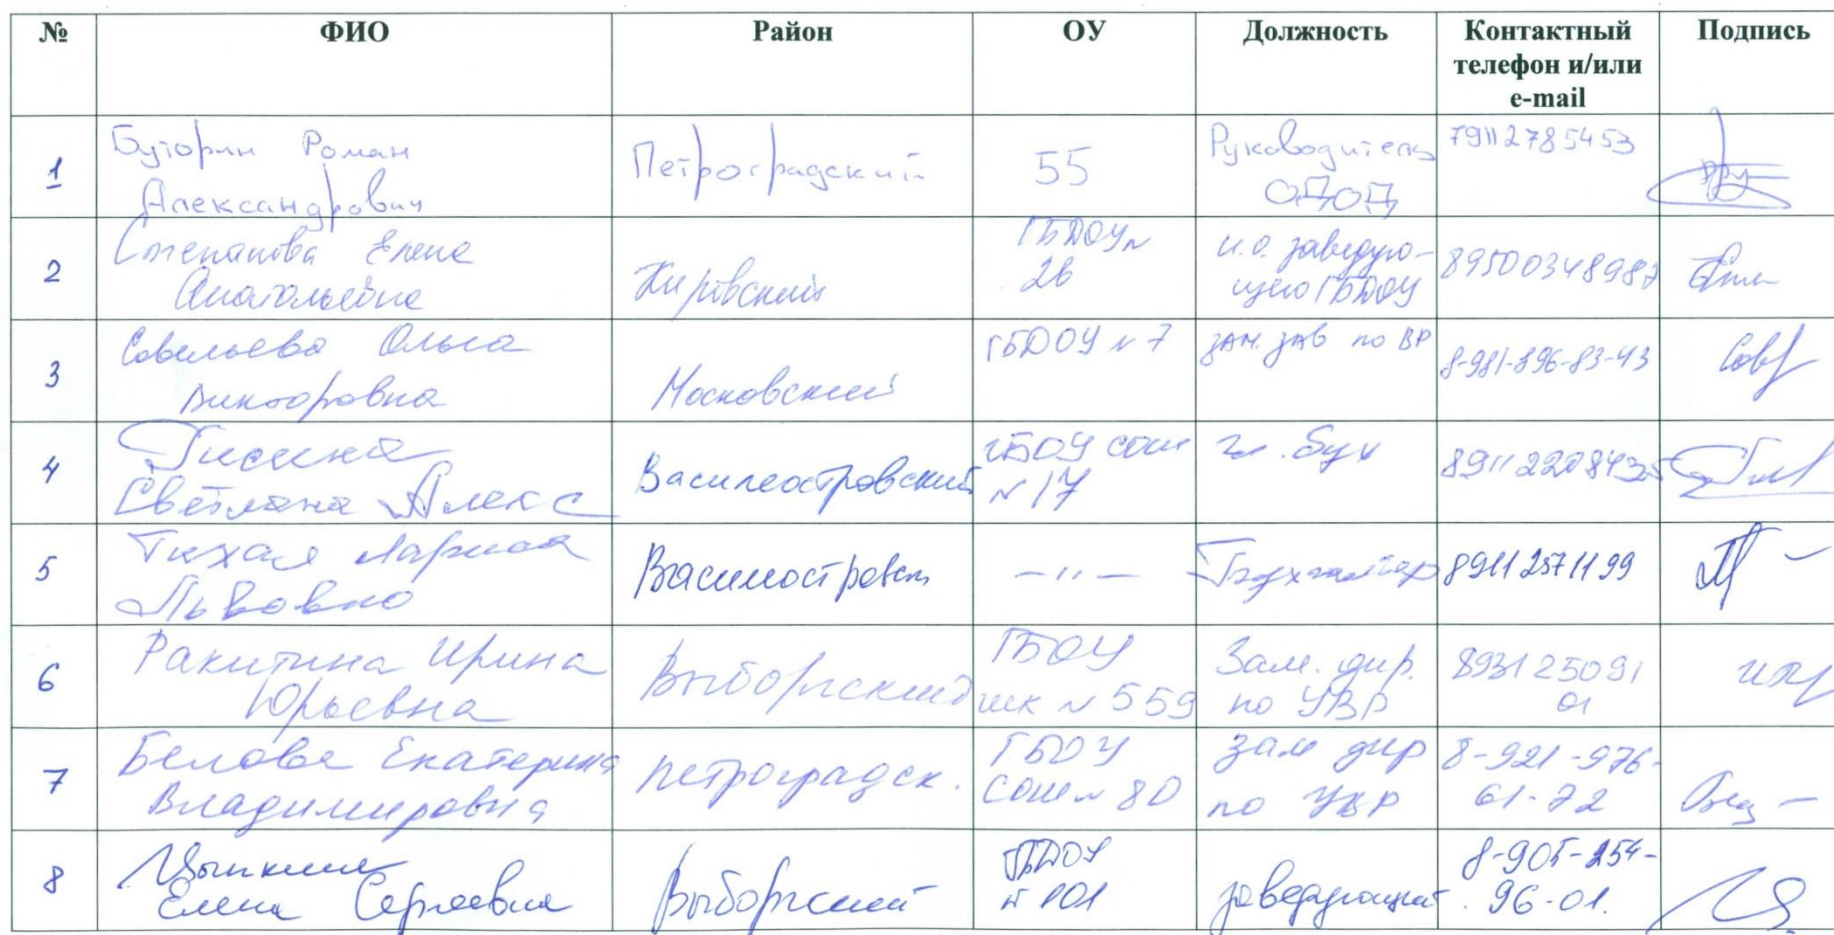 № ФИО Район ОУ Должность Контактный телефон и/или e-mail Подпись
1 Буторин Роман Александрович Петроградский 55 Руководитель ОДОД 79112785453
2 Степанова Елена Анатольевна Кировский ГБДОУ N 26 и.о. заведую-щего ГБДОУ
3 Савельева Ольга Викторовна Московский ГБДОУ N 7 зам. зав по ВР 8-981-896-83-43
4 Светлана Алекс Василеостровский ГБОУ сош N 17 гл. бух
5 Тихая Лариса Львовна Василеостровск -"- Бухгалтер 89112571199
6 Ракитина Ирина Юрьевна Выборгский ГБОУ шк N 559 Зам. дир. по УВР 893125091 01
7 Белова Екатерина Владимировна петроградск. ГБОУ сош N 80 зам дир по УВР 8-921-976-61-72
8 Елена Сергеевна Выборгский ГБДОУ N 101 заведующий 8-905-254-96-01.